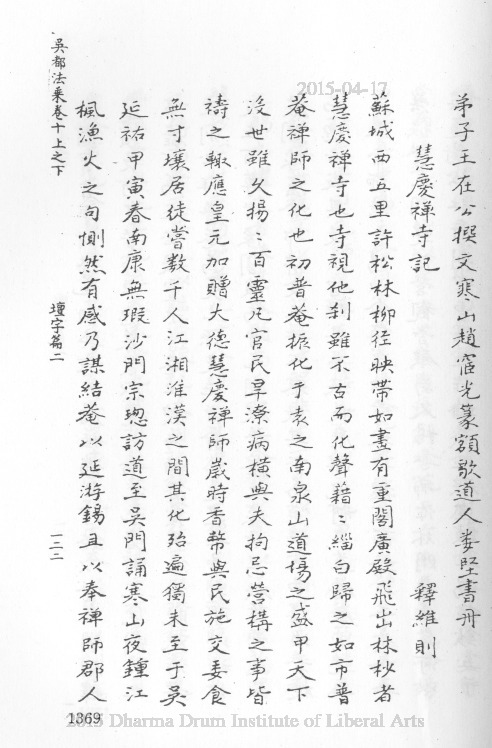 2015-04-17
弟子王在公撰文寒山趙宧光篆額歌道人婁堅書丹
慧慶禪寺記　釋維則
蘇城西五里許松林柳徑映帶如畫有重閣廣殿飛出林杪者
慧慶禪寺也寺視他刹雖不古而化聲藉〻緇白歸之如市普
菴禪師之化也初普菴振化于袁之南泉山道場之盛甲天下
沒世雖久揚〻百靈凡官民旱潦病橫與夫拘忌營構之事皆
禱之輒應皇元加贈大德慧慶禪師歲時香幣與民施交委食
無寸壤居徒嘗數千人江湘淮漢之間其化殆遍獨未至于吳
延祐甲寅春南康無瑕沙門宗璁訪道至吳門誦寒山夜鐘江
楓漁火之句惻然有感乃謀結菴以延游錫且以奉禪師郡人
吳都法乘卷十上之下
壇宇篇二
一二二
1369
2013 Dharma Drum Institute of Liberal Arts